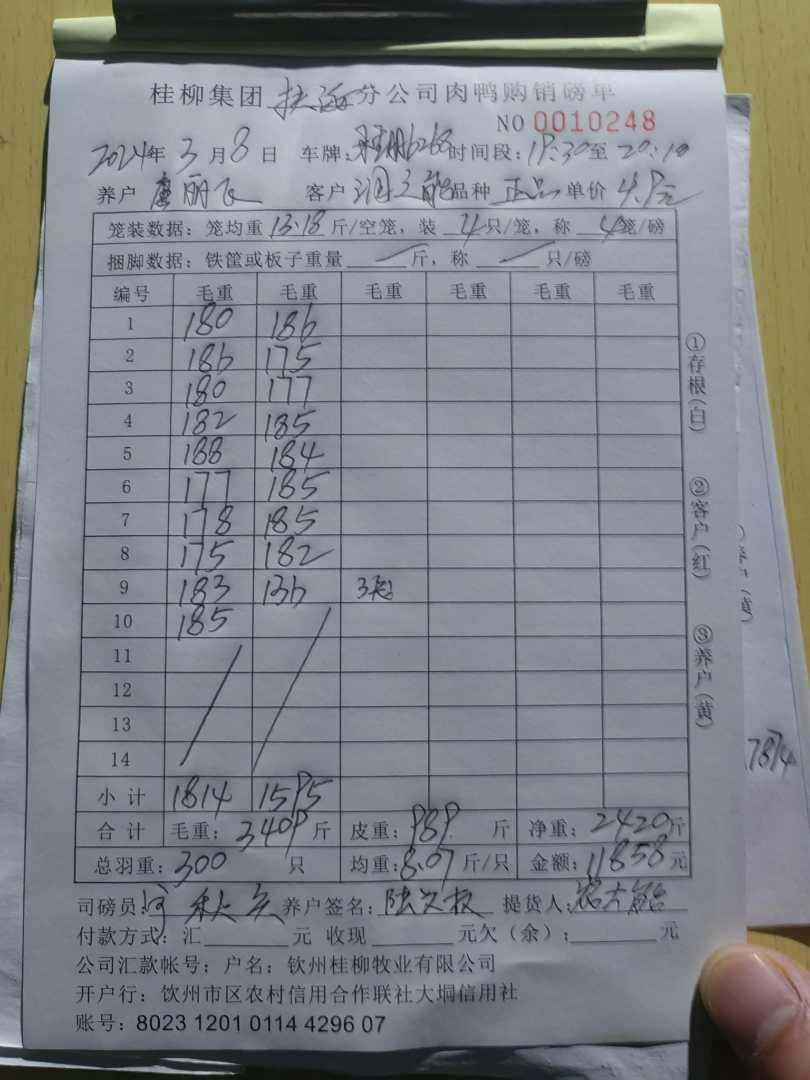 桂柳集团 分公司肉鸭购销磅单
NO 0010248
2024年 3 月 8 日 车牌: 6268 时间段: 19:30至 20:10
养户 唐丽飞 客户 品种 正品 单价 4.9元
笼装数据: 笼均重 13.18 斤/空笼, 装 4 只/笼, 称 4 笼/磅
捆脚数据: 铁筐或板子重量 斤, 称 只/磅
编号 毛重 毛重 毛重 毛重 毛重 毛重
1 180 186
2 186 175
3 180 177
4 182 185
5 188 184
6 177 185
7 178 185
8 175 182
9 183 136 3
10 185
11
12
13
14
小计 1814 1595
合计 毛重: 3409 斤 皮重: 989 斤 净重: 2420 斤
总羽重: 300 只 均重: 8.07 斤/只 金额: 11858 元
司磅员: 养户签名: 提货人:
付款方式: 汇 元 收现 元欠(余): 元
公司汇款帐号: 户名: 钦州桂柳牧业有限公司
开户行: 饮州市区农村信用合作联社大垌信用社
账号: 8023 1201 0114 4296 07
①存根(白)
②客户(红)
③养户(黄)
7874